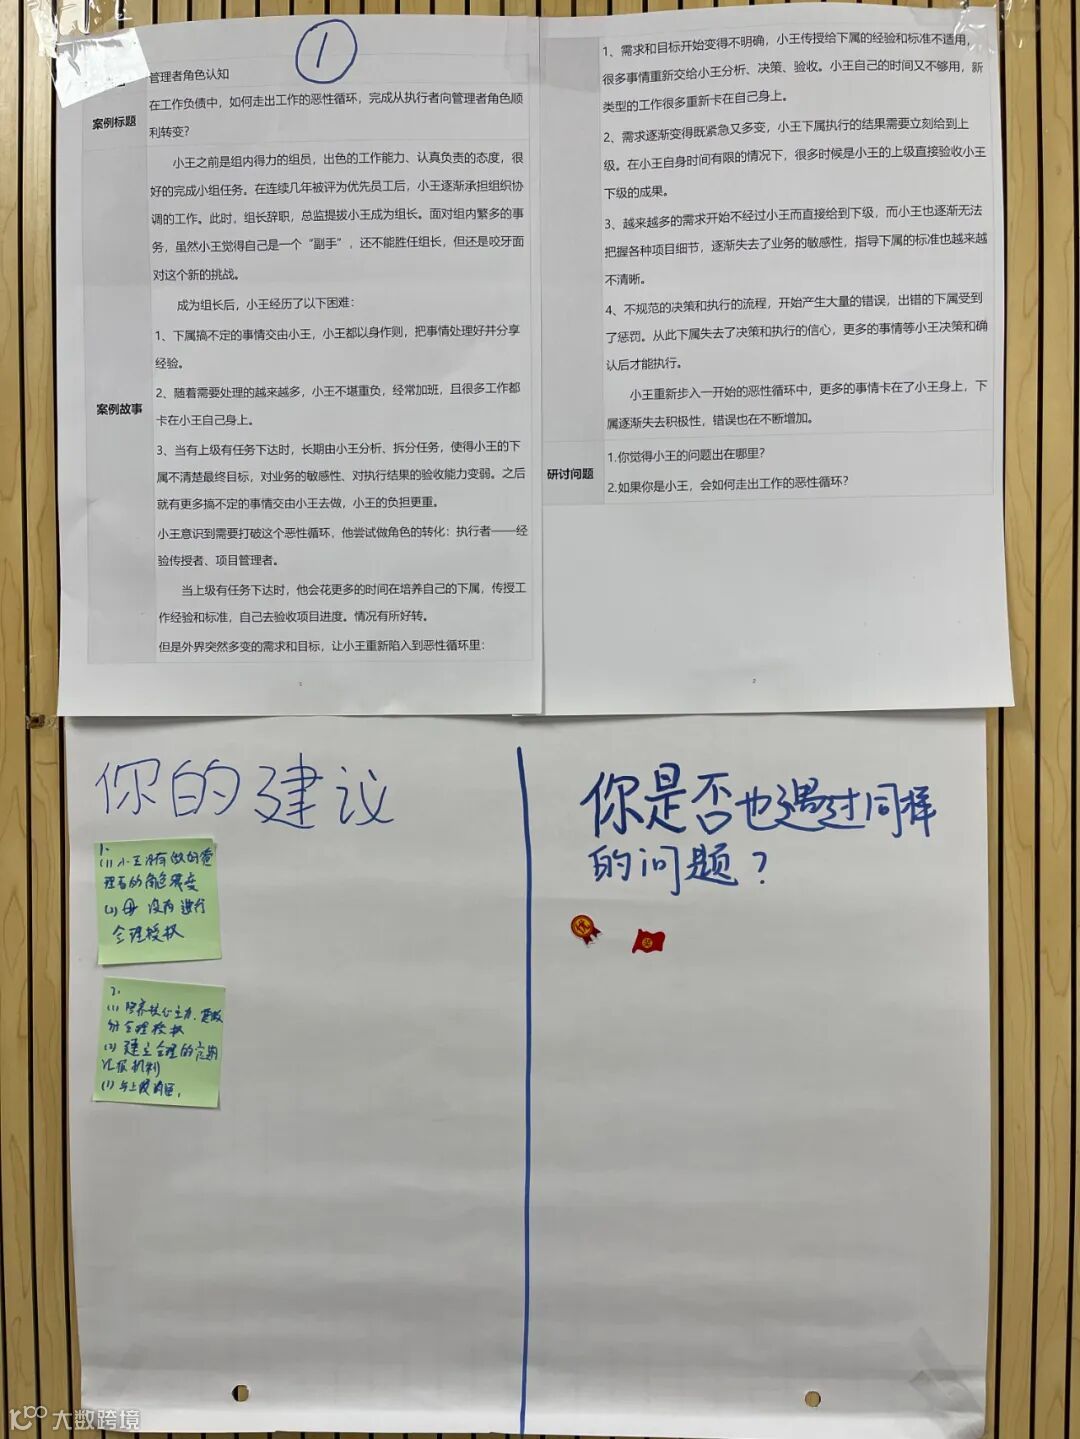 ①
管理者角色认知
案例标题
在工作负债中，如何走出工作的恶性循环，完成从执行者向管理者角色顺
利转变？
案例故事
小王之前是组内得力的组员，出色的工作能力、认真负责的态度，很
好的完成小组任务。在连续几年被评为优先员工后，小王逐渐承担组织协
调的工作。此时，组长辞职，总监提拔小王成为组长。面对组内繁多的事
务，虽然小王觉得自己是一个“副手”，还不能胜任组长，但还是咬牙面
对这个新的挑战。
成为组长后，小王经历了以下困难：
1、下属搞不定的事情交由小王，小王都以身作则，把事情处理好并分享
经验。
2、随着需要处理的越来越多，小王不堪重负，经常加班，且很多工作都
卡在小王自己身上。
3、当有上级有任务下达时，长期由小王分析、拆分任务，使得小王的下
属不清楚最终目标，对业务的敏感性、对执行结果的验收能力变弱。之后
就有更多搞不定的事情交由小王去做，小王的负担更重。
小王意识到需要打破这个恶性循环，他尝试做角色的转化：执行者——经
验传授者、项目管理者。
当上级有任务下达时，他会花更多的时间在培养自己的下属，传授工
作经验和标准，自己去验收项目进度。情况有所好转。
但是外界突然多变的需求和目标，让小王重新陷入到恶性循环里：
1
1、需求和目标开始变得不明确，小王传授给下属的经验和标准不适用，
很多事情重新交给小王分析、决策、验收。小王自己的时间又不够用，新
类型的工作很多重新卡在自己身上。
2、需求逐渐变得既紧急又多变，小王下属执行的结果需要立刻给到上
级。在小王自身时间有限的情况下，很多时候是小王的上级直接验收小王
下级的成果。
3、越来越多的需求开始不经过小王而直接给到下级，而小王也逐渐无法
把握各种项目细节，逐渐失去了业务的敏感性，指导下属的标准也越来越
不清晰。
4、不规范的决策和执行的流程，开始产生大量的错误，出错的下属受到
了惩罚。从此下属失去了决策和执行的信心，更多的事情等小王决策和确
认后才能执行。
小王重新步入一开始的恶性循环中，更多的事情卡在了小王身上，下
属逐渐失去积极性，错误也在不断增加。
研讨问题
1.你觉得小王的问题出在哪里？
2.如果你是小王，会如何走出工作的恶性循环？
2
你的建议
1.
(1) 小王没有做好管
理者的角色转变
(2) 没有进行
合理授权
2.
(1) 培养核心主力,
合理授权
(2) 建立合理的定期
汇报机制
(3) 与上级沟通,
你是否也遇过同样
的问题？
优
奖
大数跨境